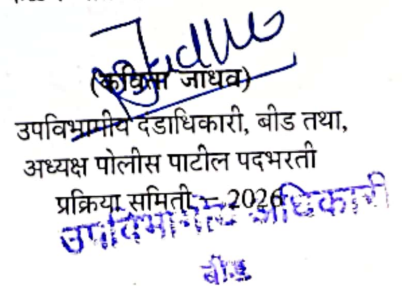 (कविता जाधव)
उपविभागीय दंडाधिकारी, बीड तथा,
अध्यक्ष पोलीस पाटील पदभरती
प्रक्रिया समिती – 2026
उपविभागीय अधिकारी
बीड